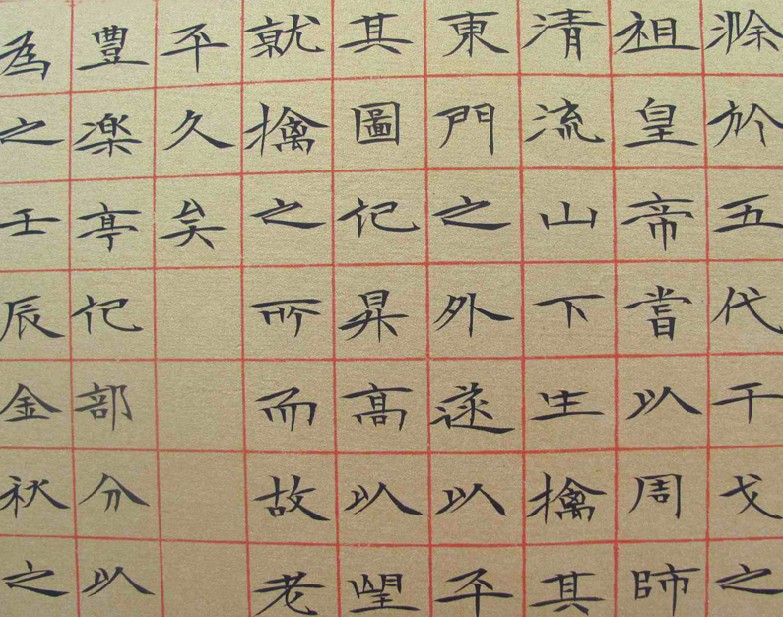 滁於五代干戈之
祖皇帝嘗以周師
清流山下生擒其
東門之外遂以平
其圖记昇高以望
就擒之所而故老
平久矣
豐楽亭记部分以
為之壬辰金秋之